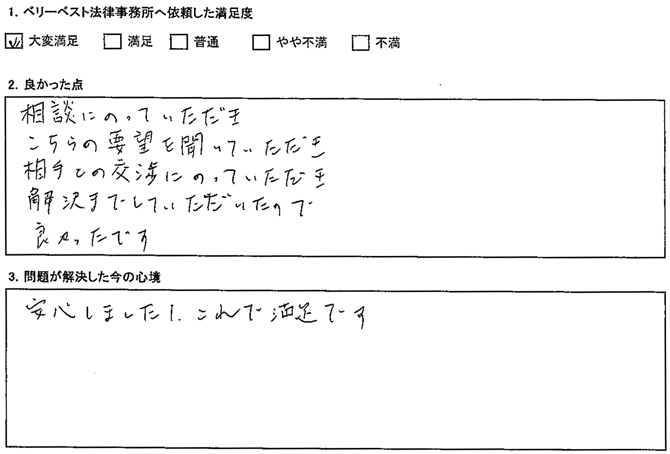 1. ベリーベスト法律事務所へ依頼した満足度
大変満足 満足 普通 やや不満 不満
2. 良かった点
相談にのっていただき
こちらの要望を聞いていただき
相手との交渉にのっていただき
解決までしていただいたので
良かったです
3. 問題が解決した今の心境
安心しました!. これで満足です